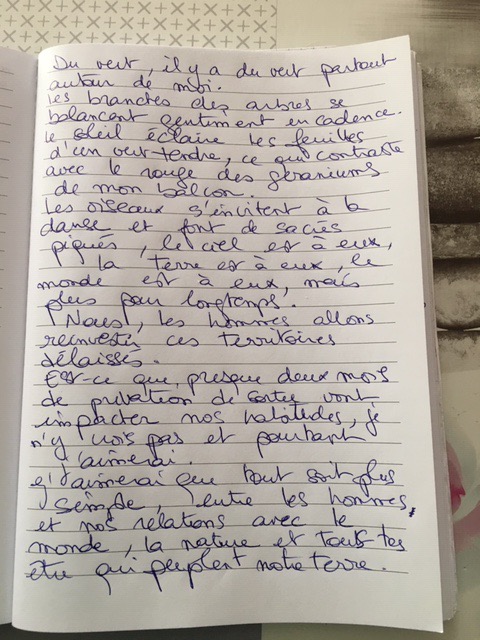 Du vert, il y a du vert partout
autour de moi.
Les branches des arbres se
balançant gentiment en cadence.
Le soleil éclaire les feuilles
d'un vert tendre, ce qui contraste
avec le rouge des géraniums
de mon balcon.
Les oiseaux s'invitent à la
danse et font de sacrés
piqués, le ciel est à eux,
la terre est à eux, le
monde est à eux, mais
plus pour longtemps.
Nous, les hommes allons
reinvestir ces territoires
délaissés.
Est-ce que, presque deux mois
de privation de sortie vont
impacter nos habitudes, je
n'y crois pas et pourtant
j'aimerai.
J'aimerai que tout soit plus
simple, entre les hommes,
et nos relations avec le
monde, la nature et tous les
être qui peuplent notre terre.